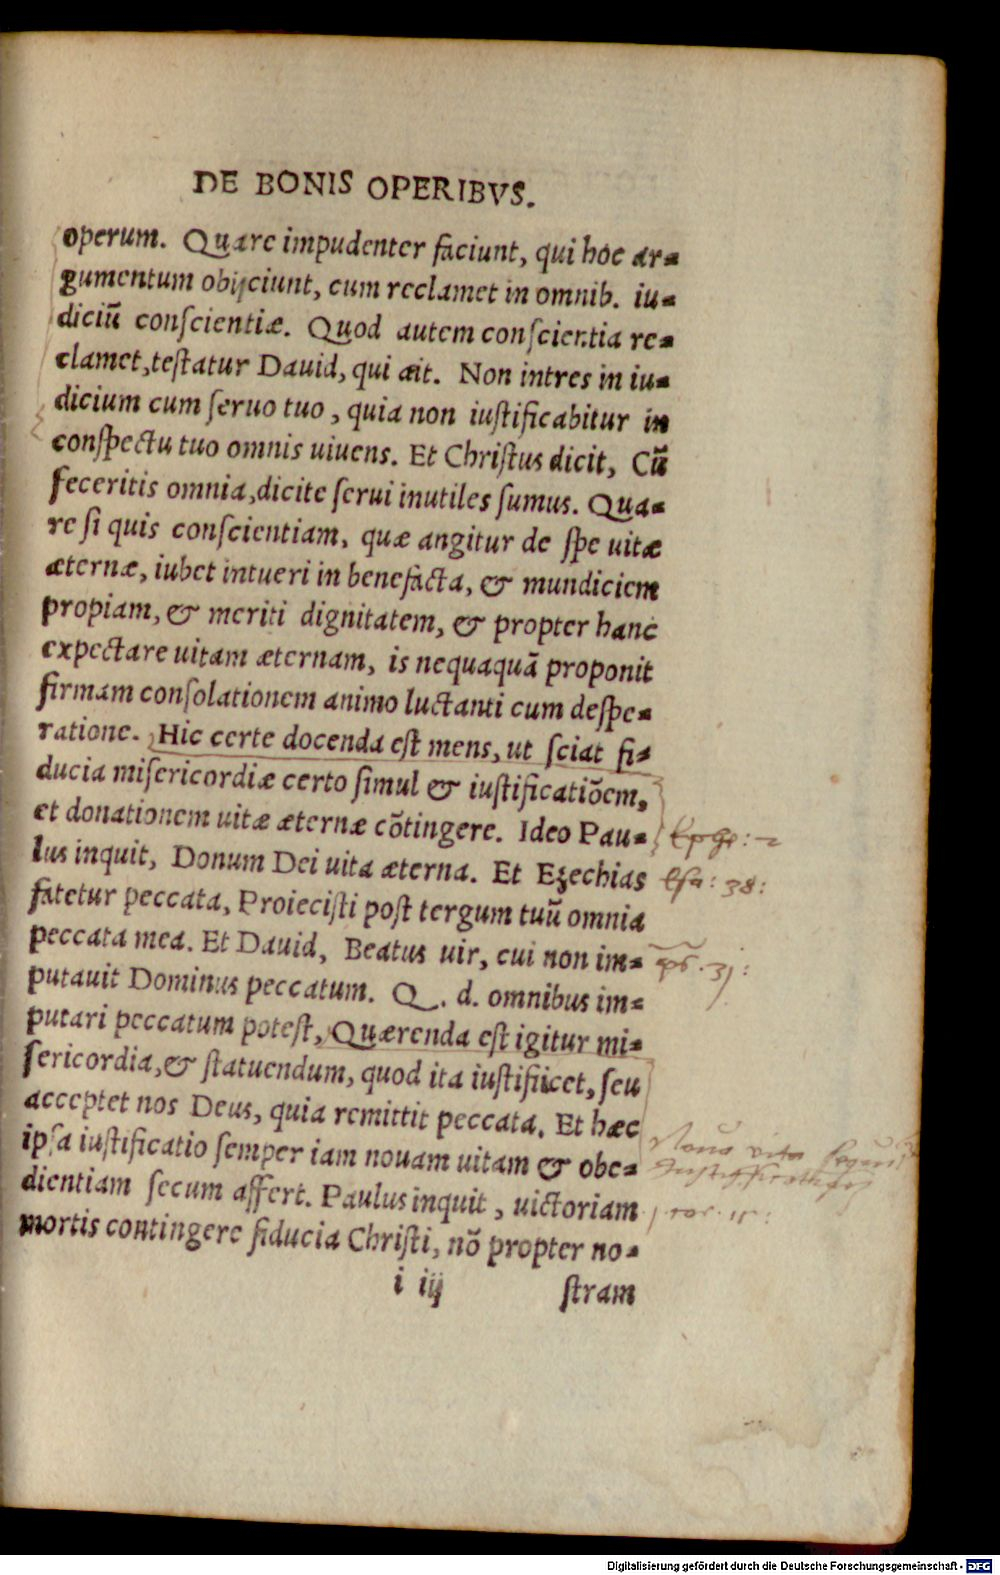 DE BONIS OPERIBVS.
operum. Quare impudenter faciunt, qui hoc ar-
gumentum obijciunt, cum reclamet in omnib. iu-
diciũ conſcientiæ. Quod autem conſcientia re-
clamet, teſtatur Dauid, qui ait. Non intres in iu-
dicium cum ſeruo tuo, quia non iuſtificabitur in
conſpectu tuo omnis uiuens. Et Chriſtus dicit, Cũ
feceritis omnia, dicite ſerui inutiles ſumus. Qua-
re ſi quis conſcientiam, quæ angitur de ſpe uitæ
æternæ, iubet intueri in benefacta, & mundiciem
propiam, & meriti dignitatem, & propter hanc
expectare uitam æternam, is nequaquã proponit
firmam conſolationem animo luctanti cum deſpe-
ratione. Hic certe docenda eſt mens, ut ſciat fi-
ducia miſericordiæ certo ſimul & iuſtificatiõem,
et donationem uitæ æternæ cõtingere. Ideo Pau-
lus inquit, Donum Dei uita æterna. Et Ezechias
fatetur peccata, Proieciſti poſt tergum tuũ omnia
peccata mea. Et Dauid, Beatus uir, cui non im-
putauit Dominus peccatum. Q. d. omnibus im-
putari peccatum poteſt, Quærenda eſt igitur mi-
ſericordia, & ſtatuendum, quod ita iuſtificet, ſeu
acceptet nos Deus, quia remittit peccata. Et hæc
ipſa iuſtificatio ſemper iam nouam uitam & obe-
dientiam ſecum affert. Paulus inquit, uictoriam
mortis contingere fiducia Chriſti, nõ propter no-
i iij ſtram
Ephe: 2
Esa: 38:
ps. 31:
Noua vita
1 cor. 15:
Digitalisierung gefördert durch die Deutsche Forschungsgemeinschaft - DFG